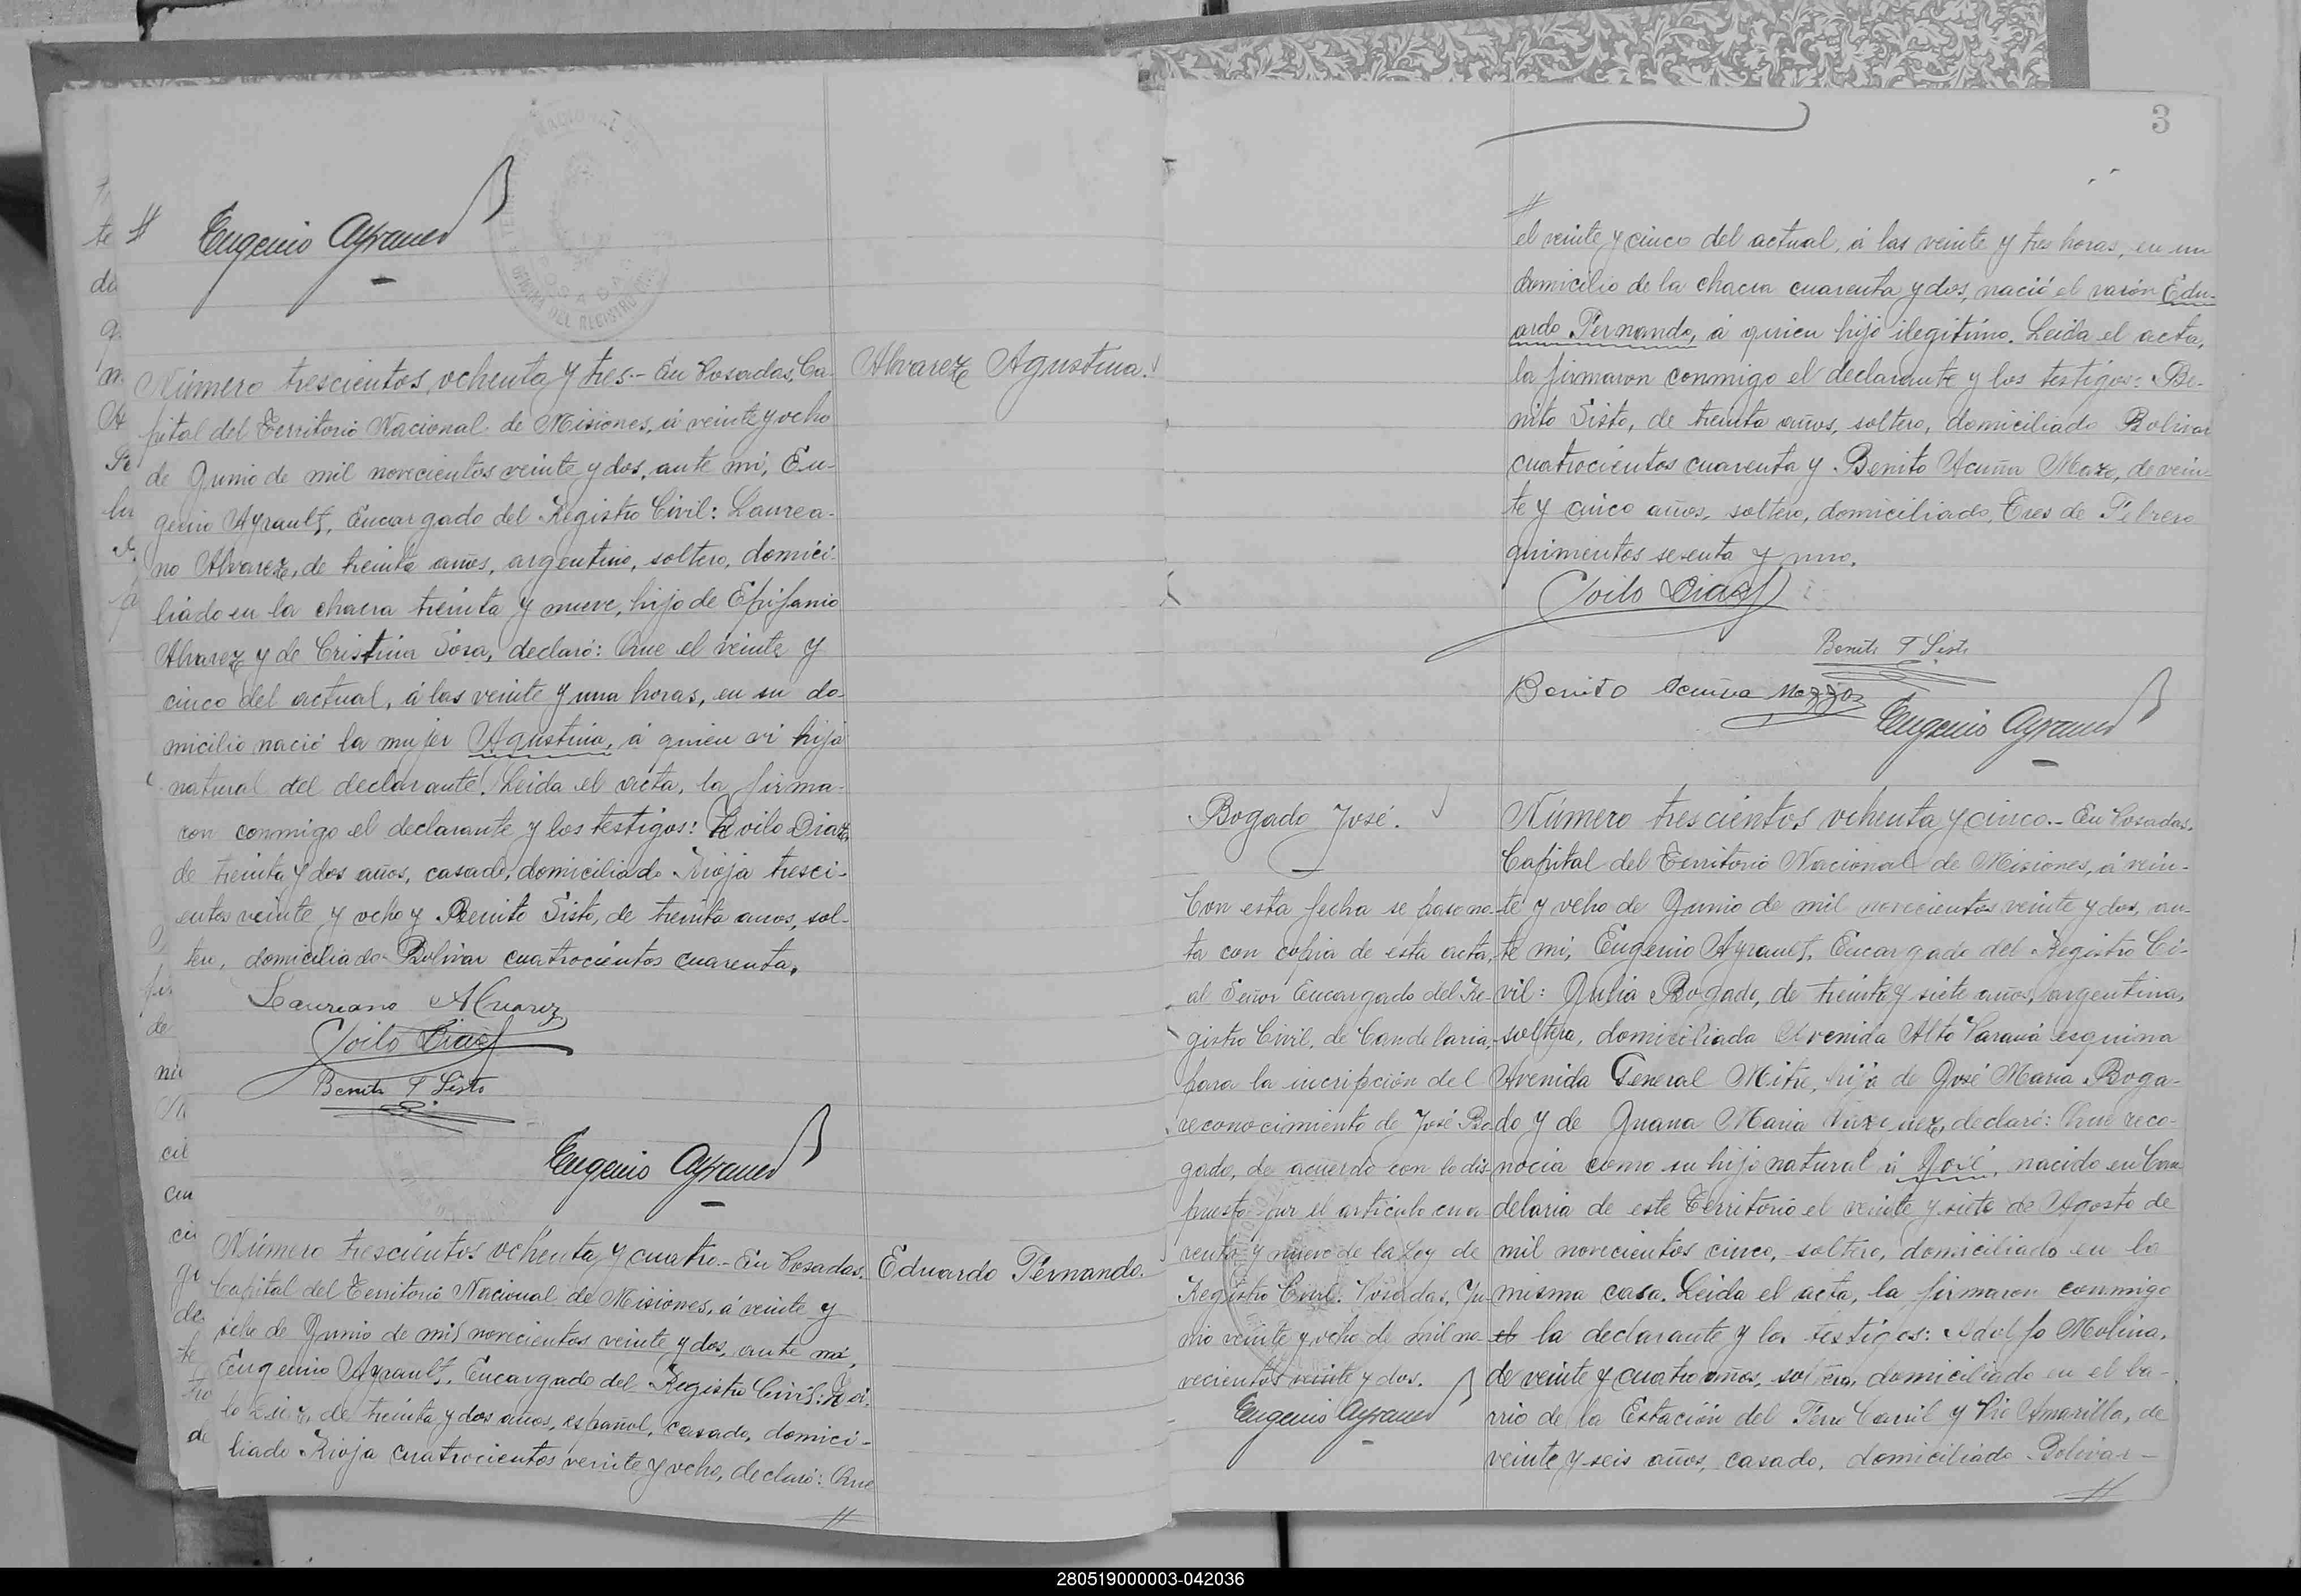 Eugenio Ayrault
OFICINA DEL REGISTRO CIVIL
POSADAS
Álvarez Agustina.
Número trescientos ochenta y tres.- En Posadas, Ca-
pital del Territorio Nacional de Misiones, á veinte y ocho
de Junio de mil novecientos veinte y dos, ante mí, Eu-
genio Ayrault, Encargado del Registro Civil: Laurea-
no Alvarez, de treinta años, argentino, soltero, domici-
liado en la chacra treinta y nueve, hijo de Epifanio
Alvarez y de Cristina Sosa, declaró: Que el veinte y
cinco del actual, á las veinte y una horas, en su do-
micilio nació la mujer Agustina, á quien vi hija
natural del declarante. Leida el acta, la firma-
ron conmigo el declarante y los testigos: Zoilo Diaz,
de treinta y dos años, casado, domiciliado Rioja tresci-
entos veinte y ocho y Benito Sisto, de treinta años, sol-
tero, domiciliado Bolivar cuatrocientos cuarenta.
Laureano Alvarez
Zoilo Diaz
Benito P Sisto
Eugenio Ayrault
Eduardo Fernando.
Número trescientos ochenta y cuatro.- En Posadas,
Capital del Territorio Nacional de Misiones, á veinte y
ocho de Junio de mil novecientos veinte y dos, ante mí,
Eugenio Ayrault, Encargado del Registro Civil: Zoi-
lo Diaz, de treinta y dos años, español, casado, domici-
liado Rioja cuatrocientos veinte y ocho, declaró: Que
//
3
//
el veinte y cinco del actual, á las veinte y tres horas, en un
domicilio de la chacra cuarenta y dos, nació el varón Edu-
ardo Fernando, á quien hijo ilegitimo. Leida el acta,
la firmaron conmigo el declarante y los testigos: Be-
nito Sisto, de treinta años, soltero, domiciliado Bolivar
cuatrocientos cuarenta y Benito Acuña Mazo, de vein-
te y cinco años, soltero, domiciliado Tres de Febrero
quinientos sesenta y uno.
Zoilo Diaz
Benito P Sisto
Benito Acuña Mazzo
Eugenio Ayrault
Bogado José.
Con esta fecha se pasó no-
ta con copia de esta acta,
al Señor Encargado del Re-
gistro Civil, de Candelaria,
para la incripción del
reconocimiento de José Bo-
gado, de acuerdo con lo dis-
puesto por el artículo cua-
renta y nueve de la Ley de
Registro Civil. Posadas, Ju-
nio veinte y ocho de mil no-
vecientos veinte y dos.
Eugenio Ayrault
Número trescientos ochenta y cinco.- En Posadas,
Capital del Territorio Nacional de Misiones, á vein-
te y ocho de Junio de mil novecientos veinte y dos, an-
te mí, Eugenio Ayrault, Encargado del Registro Ci-
vil: Julia Bogado, de treinta y siete años, argentina,
soltera, domiciliada Avenida Alto Paraná esquina
Avenida General Mitre, hija de José Maria Boga-
do y de Juana Maria declaró: Que reco-
nocia como su hijo natural á José, nacido en Can-
delaria de este Territorio el veinte y siete de Agosto de
mil novecientos cinco, soltero, domiciliado en la
misma casa. Leida el acta, la firmaron conmigo
el la declarante y los testigos: Adolfo Molina,
de veinte y cuatro años, soltero, domiciliado en el ba-
rrio de la Estación del Ferro Carril y Pio Amarilla, de
veinte y seis años, casado, domiciliado Bolivar-
//
280519000003-042036